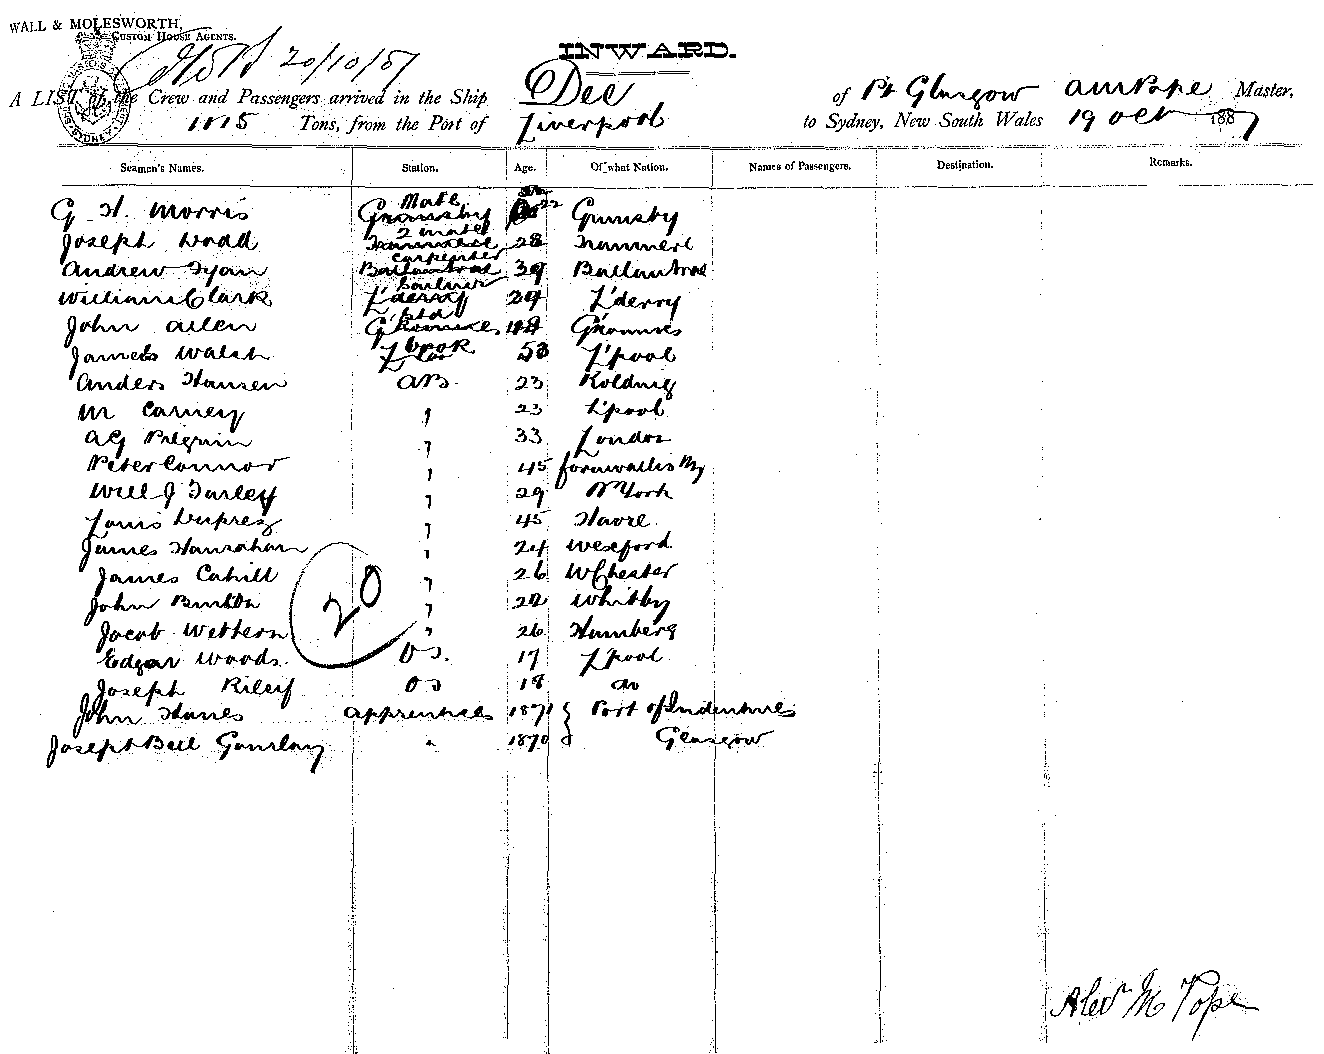 WALL & MOLESWORTH,
CUSTOM HOUSE AGENTS.
20/10/87
INWARD.
A LIST of the Crew and Passengers arrived in the Ship Dee of Pt Glasgow AM Pope Master,
1115 Tons, from the Port of Liverpool to Sydney, New South Wales 19 Oct 1887
Seamen's Names. Station. Age. Of what Nation. Names of Passengers. Destination. Remarks.
G H Morris Mate Grimsby 22 Grimsby
Joseph Dodd 2 mate Tranmere 28 Tranmere
Andrew Tyson Carpenter Ballantrae 39 Ballantrae
William Clark L'derry 24 L'derry
John Allen Std
James Walsh Cook 53 L'pool
Anders Hansen AB. 23 Kolding
M Carney " 23 L'pool
AG Pilgrim " 33 London
Peter Connor " 45 Cornwallis
Will J Farley " 29 N York
Louis Duprez " 45 Havre
James Hanrahan " 24 Wexford
James Cahill " 26 W Chester
John Burton " 22 Whitby
Jacob Wettern " 26 Hamberg
Edgar Woods OS. 17 L'pool
Joseph Riley OS 18 do
20
John Hanes Apprentices 1871 Port of Indentures
Joseph Bell Gourlay " 1870 Glasgow
Alexr M Pope